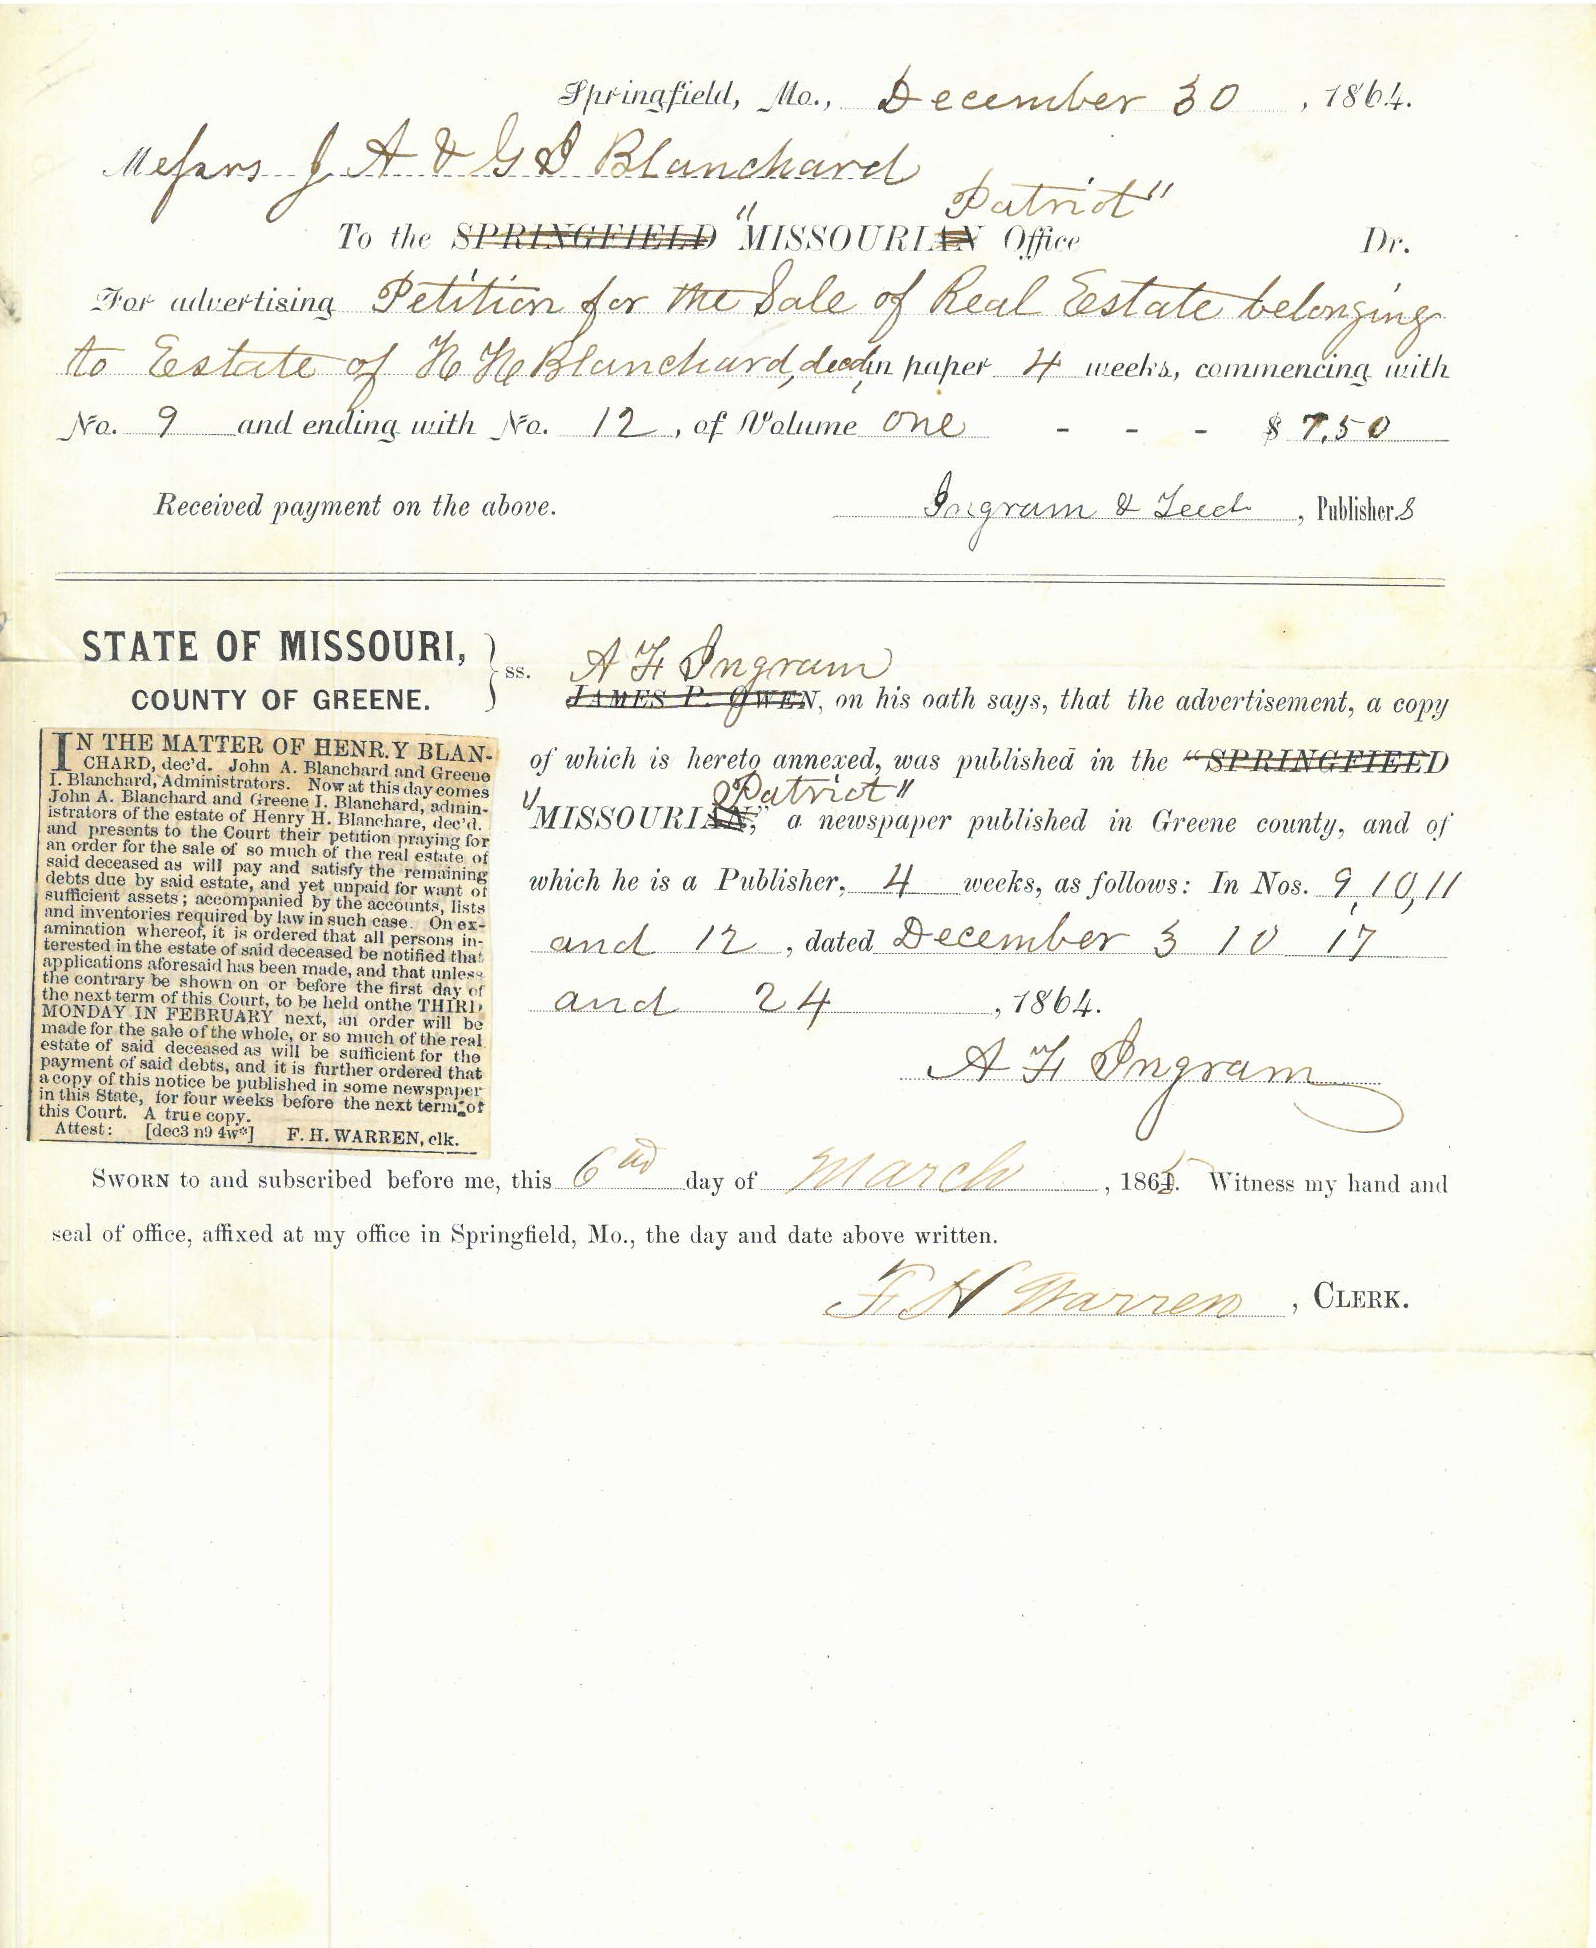 Springfield, Mo., December 30, 1864.
Messrs J A & G I Blanchard
Patriot"
To the SPRINGFIELD "MISSOURIAN Office Dr.
For advertising Petition for the Sale of Real Estate belonging
to Estate of H H Blanchard, decd, in paper 4 weeks, commencing with
No. 9 and ending with No. 12, of Volume one - - - $ 7.50
Received payment on the above. Ingram & Teed, Publisher.s
STATE OF MISSOURI,
COUNTY OF GREENE. } ss.
A F Ingram
JAMES P. OWEN, on his oath says, that the advertisement, a copy
of which is hereto annexed, was published in the "SPRINGFIELD
Patriot"
"MISSOURIAN," a newspaper published in Greene county, and of
which he is a Publisher, 4 weeks, as follows: In Nos. 9, 10, 11
and 12, dated December 3 10 17
and 24, 1864.
A F Ingram
IN THE MATTER OF HENR.Y BLAN-
CHARD, dec'd. John A. Blanchard and Greene
I. Blanchard, Administrators. Now at this day comes
John A. Blanchard and Greene I. Blanchard, admin-
istrators of the estate of Henry H. Blanchare, dec'd.
and presents to the Court their petition praying for
an order for the sale of so much of the real estate of
said deceased as will pay and satisfy the remaining
debts due by said estate, and yet unpaid for want of
sufficient assets; accompanied by the accounts, lists
and inventories required by law in such case. On ex-
amination whereof, it is ordered that all persons in-
terested in the estate of said deceased be notified that
applications aforesaid has been made, and that unless
the contrary be shown on or before the first day of
the next term of this Court, to be held onthe THIRD
MONDAY IN FEBRUARY next, an order will be
made for the sale of the whole, or so much of the real
estate of said deceased as will be sufficient for the
payment of said debts, and it is further ordered that
a copy of this notice be published in some newspaper
in this State, for four weeks before the next term of
this Court. A true copy.
Attest: [dec3 n9 4w*] F. H. WARREN, clk.
SWORN to and subscribed before me, this 6nd day of March, 1865. Witness my hand and
seal of office, affixed at my office in Springfield, Mo., the day and date above written.
F H Warren, CLERK.